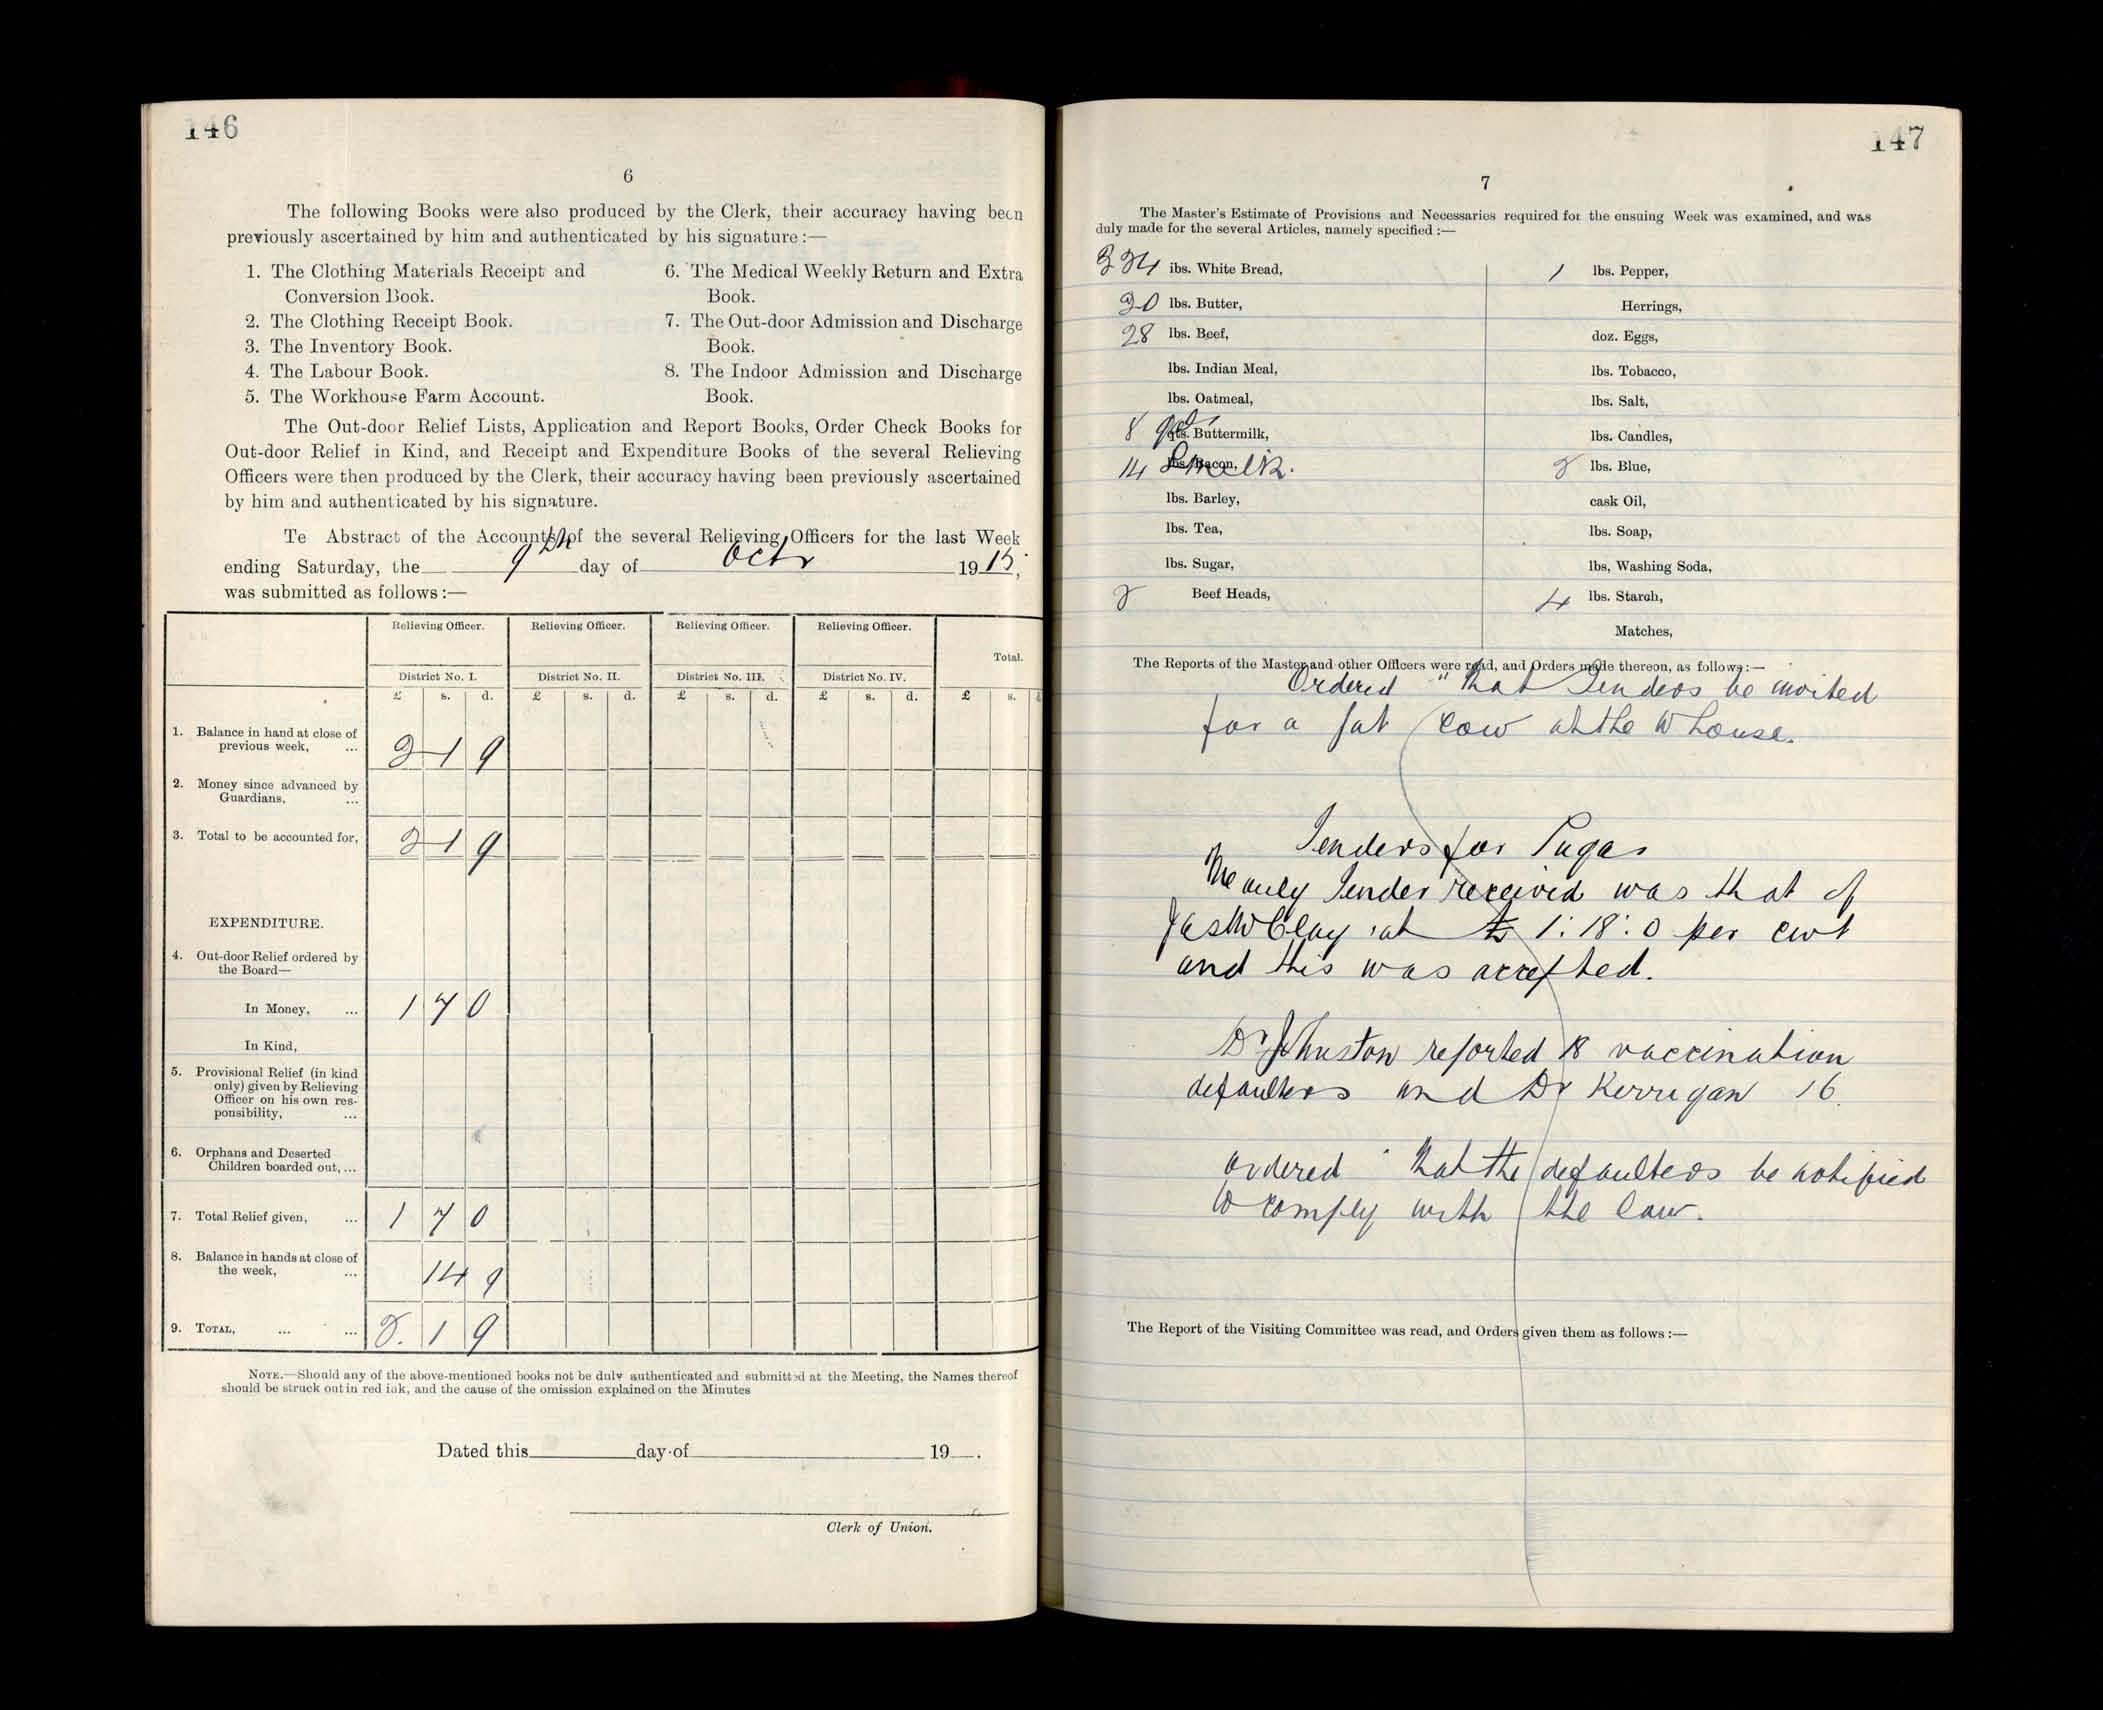 146
6
The following Books were also produced by the Clerk, their accuracy having been
previously ascertained by him and authenticated by his signature :—
1. The Clothing Materials Receipt and
Conversion Book.
2. The Clothing Receipt Book.
3. The Inventory Book.
4. The Labour Book.
5. The Workhouse Farm Account.
6. The Medical Weekly Return and Extra
Book.
7. The Out-door Admission and Discharge
Book.
8. The Indoor Admission and Discharge
Book.
The Out-door Relief Lists, Application and Report Books, Order Check Books for
Out-door Relief in Kind, and Receipt and Expenditure Books of the several Relieving
Officers were then produced by the Clerk, their accuracy having been previously ascertained
by him and authenticated by his signature.
Te Abstract of the Accounts of the several Relieving Officers for the last Week
ending Saturday, the 9th day of Octr 1915,
was submitted as follows :—
Relieving Officer. Relieving Officer. Relieving Officer. Relieving Officer.
Total.
District No. I. District No. II. District No. III. District No. IV.
£ s. d. £ s. d. £ s. d. £ s. d. £ s.
1. Balance in hand at close of
previous week, ... 2 1 9
2. Money since advanced by
Guardians, ...
3. Total to be accounted for, 2 1 9
EXPENDITURE.
4. Out-door Relief ordered by
the Board—
In Money, ... 1 7 0
In Kind,
5. Provisional Relief (in kind
only) given by Relieving
Officer on his own res-
ponsibility, ...
6. Orphans and Deserted
Children boarded out, ...
7. Total Relief given, ... 1 7 0
8. Balance in hands at close of
the week, ... 14 9
9. TOTAL, ... ... 2. 1 9
NOTE.—Should any of the above-mentioned books not be duly authenticated and submitted at the Meeting, the Names thereof
should be struck out in red ink, and the cause of the omission explained on the Minutes
Dated this day of 19 .
Clerk of Union.
147
7
The Master's Estimate of Provisions and Necessaries required for the ensuing Week was examined, and was
duly made for the several Articles, namely specified :—
324 lbs. White Bread,
20 lbs. Butter,
28 lbs. Beef,
lbs. Indian Meal,
lbs. Oatmeal,
8 qts. Buttermilk,
14 lbs. Bacon,
lbs. Barley,
lbs. Tea,
lbs. Sugar,
2 Beef Heads,
1 lbs. Pepper,
Herrings,
doz. Eggs,
lbs. Tobacco,
lbs. Salt,
lbs. Candles,
2 lbs. Blue,
cask Oil,
lbs. Soap,
lbs, Washing Soda,
4 lbs. Starch,
Matches,
The Reports of the Master and other Officers were read, and Orders made thereon, as follows :—
Ordered " that Tenders be invited
for a fat cow at the W house.
Tenders for Sugar
The only Tender received was that of
Jas McClay at £ 1 : 18 : 0 per cwt
and this was accepted.
Dr Johnston reported 18 vaccination
defaulters and Dr Kerrigan 16.
ordered " that the defaulters be notified
to comply with the law.
The Report of the Visiting Committee was read, and Orders given them as follows :—